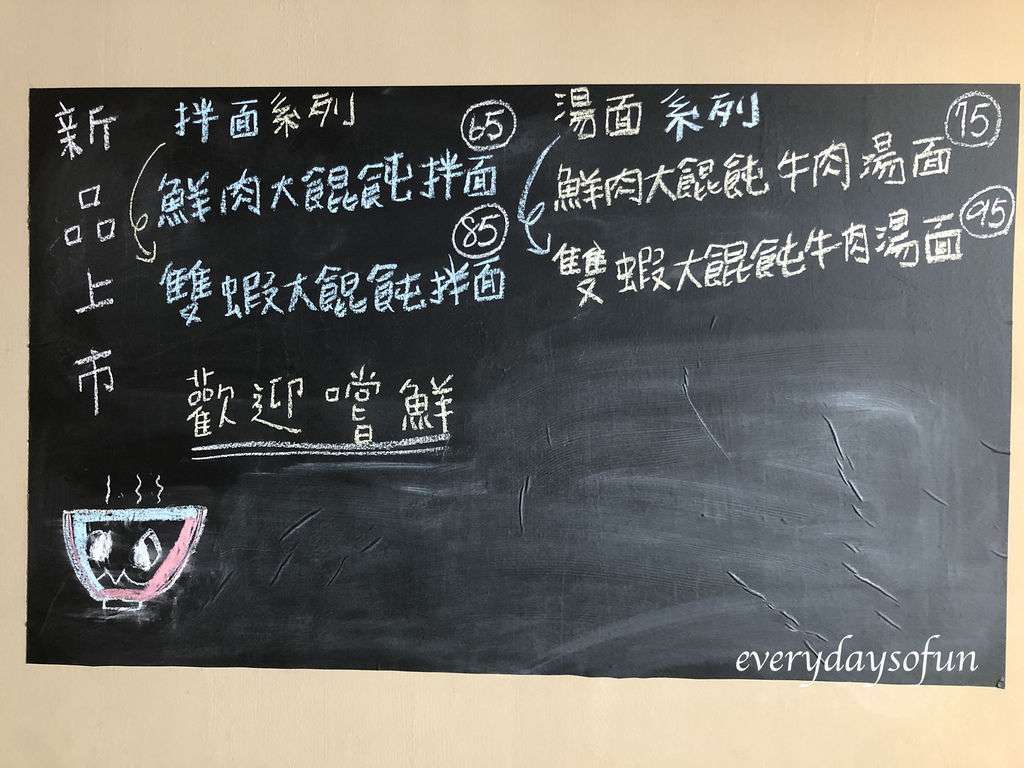 新品上市
拌面系列
65
鮮肉大餛飩拌面
85
雙蝦大餛飩拌面
湯面系列
75
鮮肉大餛飩牛肉湯面
95
雙蝦大餛飩牛肉湯面
歡迎嚐鮮
everydaysofun